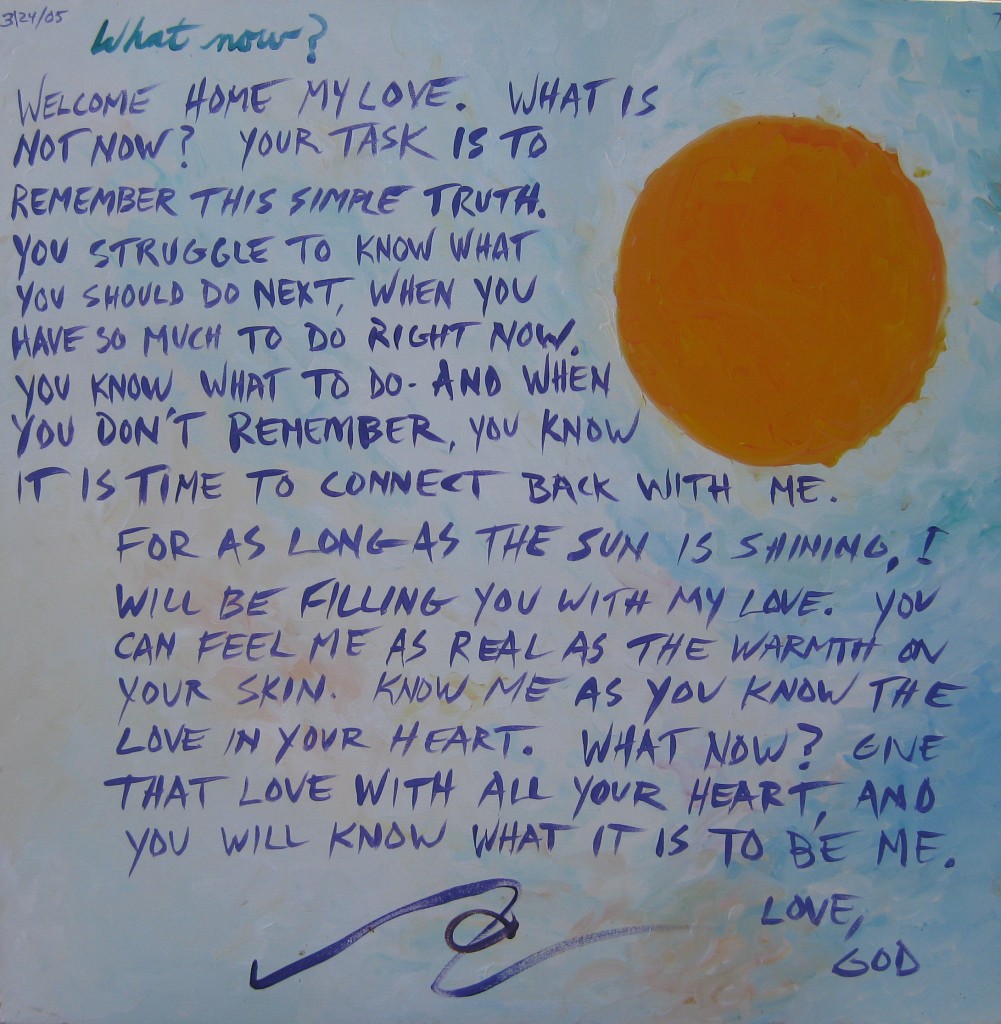 3/24/05
What now?
WELCOME HOME MY LOVE. WHAT IS
NOT NOW? YOUR TASK IS TO
REMEMBER THIS SIMPLE TRUTH.
YOU STRUGGLE TO KNOW WHAT
YOU SHOULD DO NEXT, WHEN YOU
HAVE SO MUCH TO DO RIGHT NOW.
YOU KNOW WHAT TO DO - AND WHEN
YOU DON'T REMEMBER, YOU KNOW
IT IS TIME TO CONNECT BACK WITH ME.
FOR AS LONG AS THE SUN IS SHINING, I
WILL BE FILLING YOU WITH MY LOVE. YOU
CAN FEEL ME AS REAL AS THE WARMTH ON
YOUR SKIN. KNOW ME AS YOU KNOW THE
LOVE IN YOUR HEART. WHAT NOW? GIVE
THAT LOVE WITH ALL YOUR HEART, AND
YOU WILL KNOW WHAT IT IS TO BE ME.
LOVE,
GOD